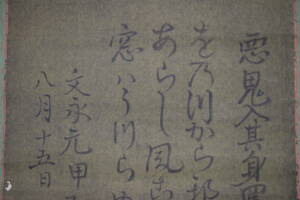 悪鬼入其身
をの川から邪
あらし風こ
窓ハう川ら
文永元甲
八月十五日